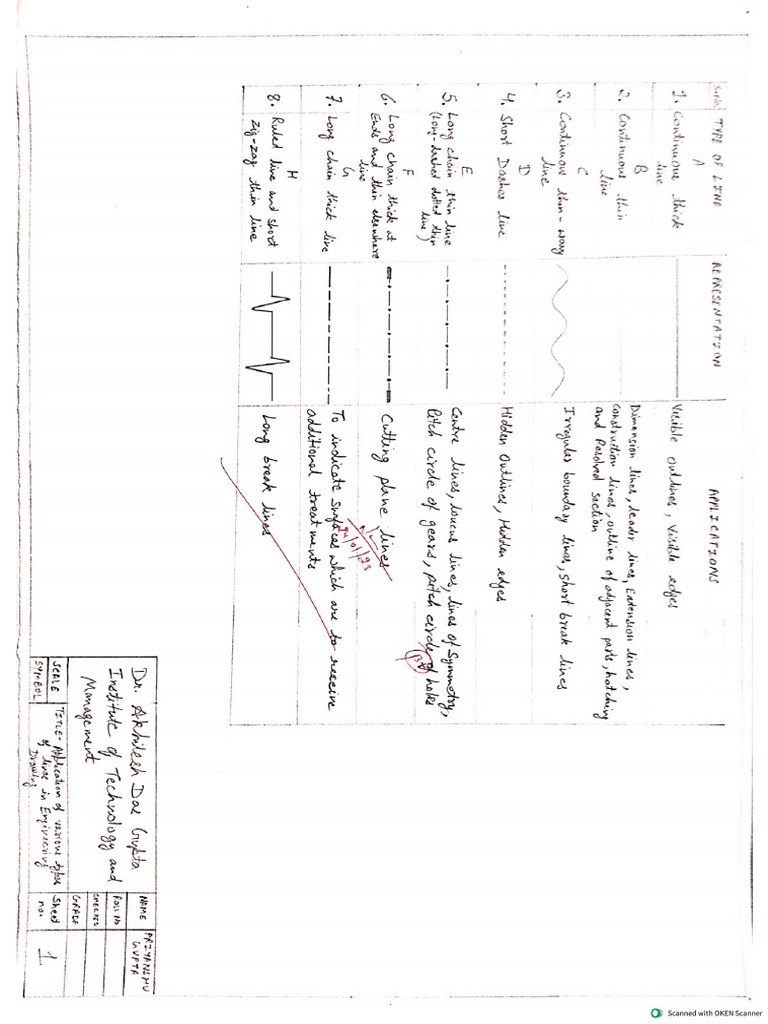 TYPE OF LINE
REPRESENTATION
APPLICATIONS
1. Continuous thick
line
A
Visible outlines, Visible edges
2. Continuous thin
line
B
Dimension lines, leader lines, Extension lines,
construction lines, outline of adjacent parts, hatching
and Revolved section
3. Continuous thin-wavy
line
C
Irregular boundary lines, short break lines
4. Short Dashes line
D
Hidden Outlines, Hidden edges
5. Long chain thin line
(Long-dashed dotted thin
line)
E
Centre lines, Loucus lines, lines of Symmetry,
Pitch circle of gears, pitch circle of holes
6. Long chain thick at
Ends and thin elsewhere
line
F
Cutting plane lines
7. Long chain thick line
G
To indicate surfaces which are to receive
additional treatments
8. Ruled line and short
zig-zag thin line
H
Long break lines
24/01/23
Dr. Akhilesh Das Gupta
Institute of Technology and
Management
NAME
PRIYANSHU
GUPTA
ROLL NO
CHECKED
GRADE
SCALE
SYMBOL
TITLE- Application of various types
of lines in Engineering
Drawing
Sheet
no.
1
Scanned with OKEN Scanner